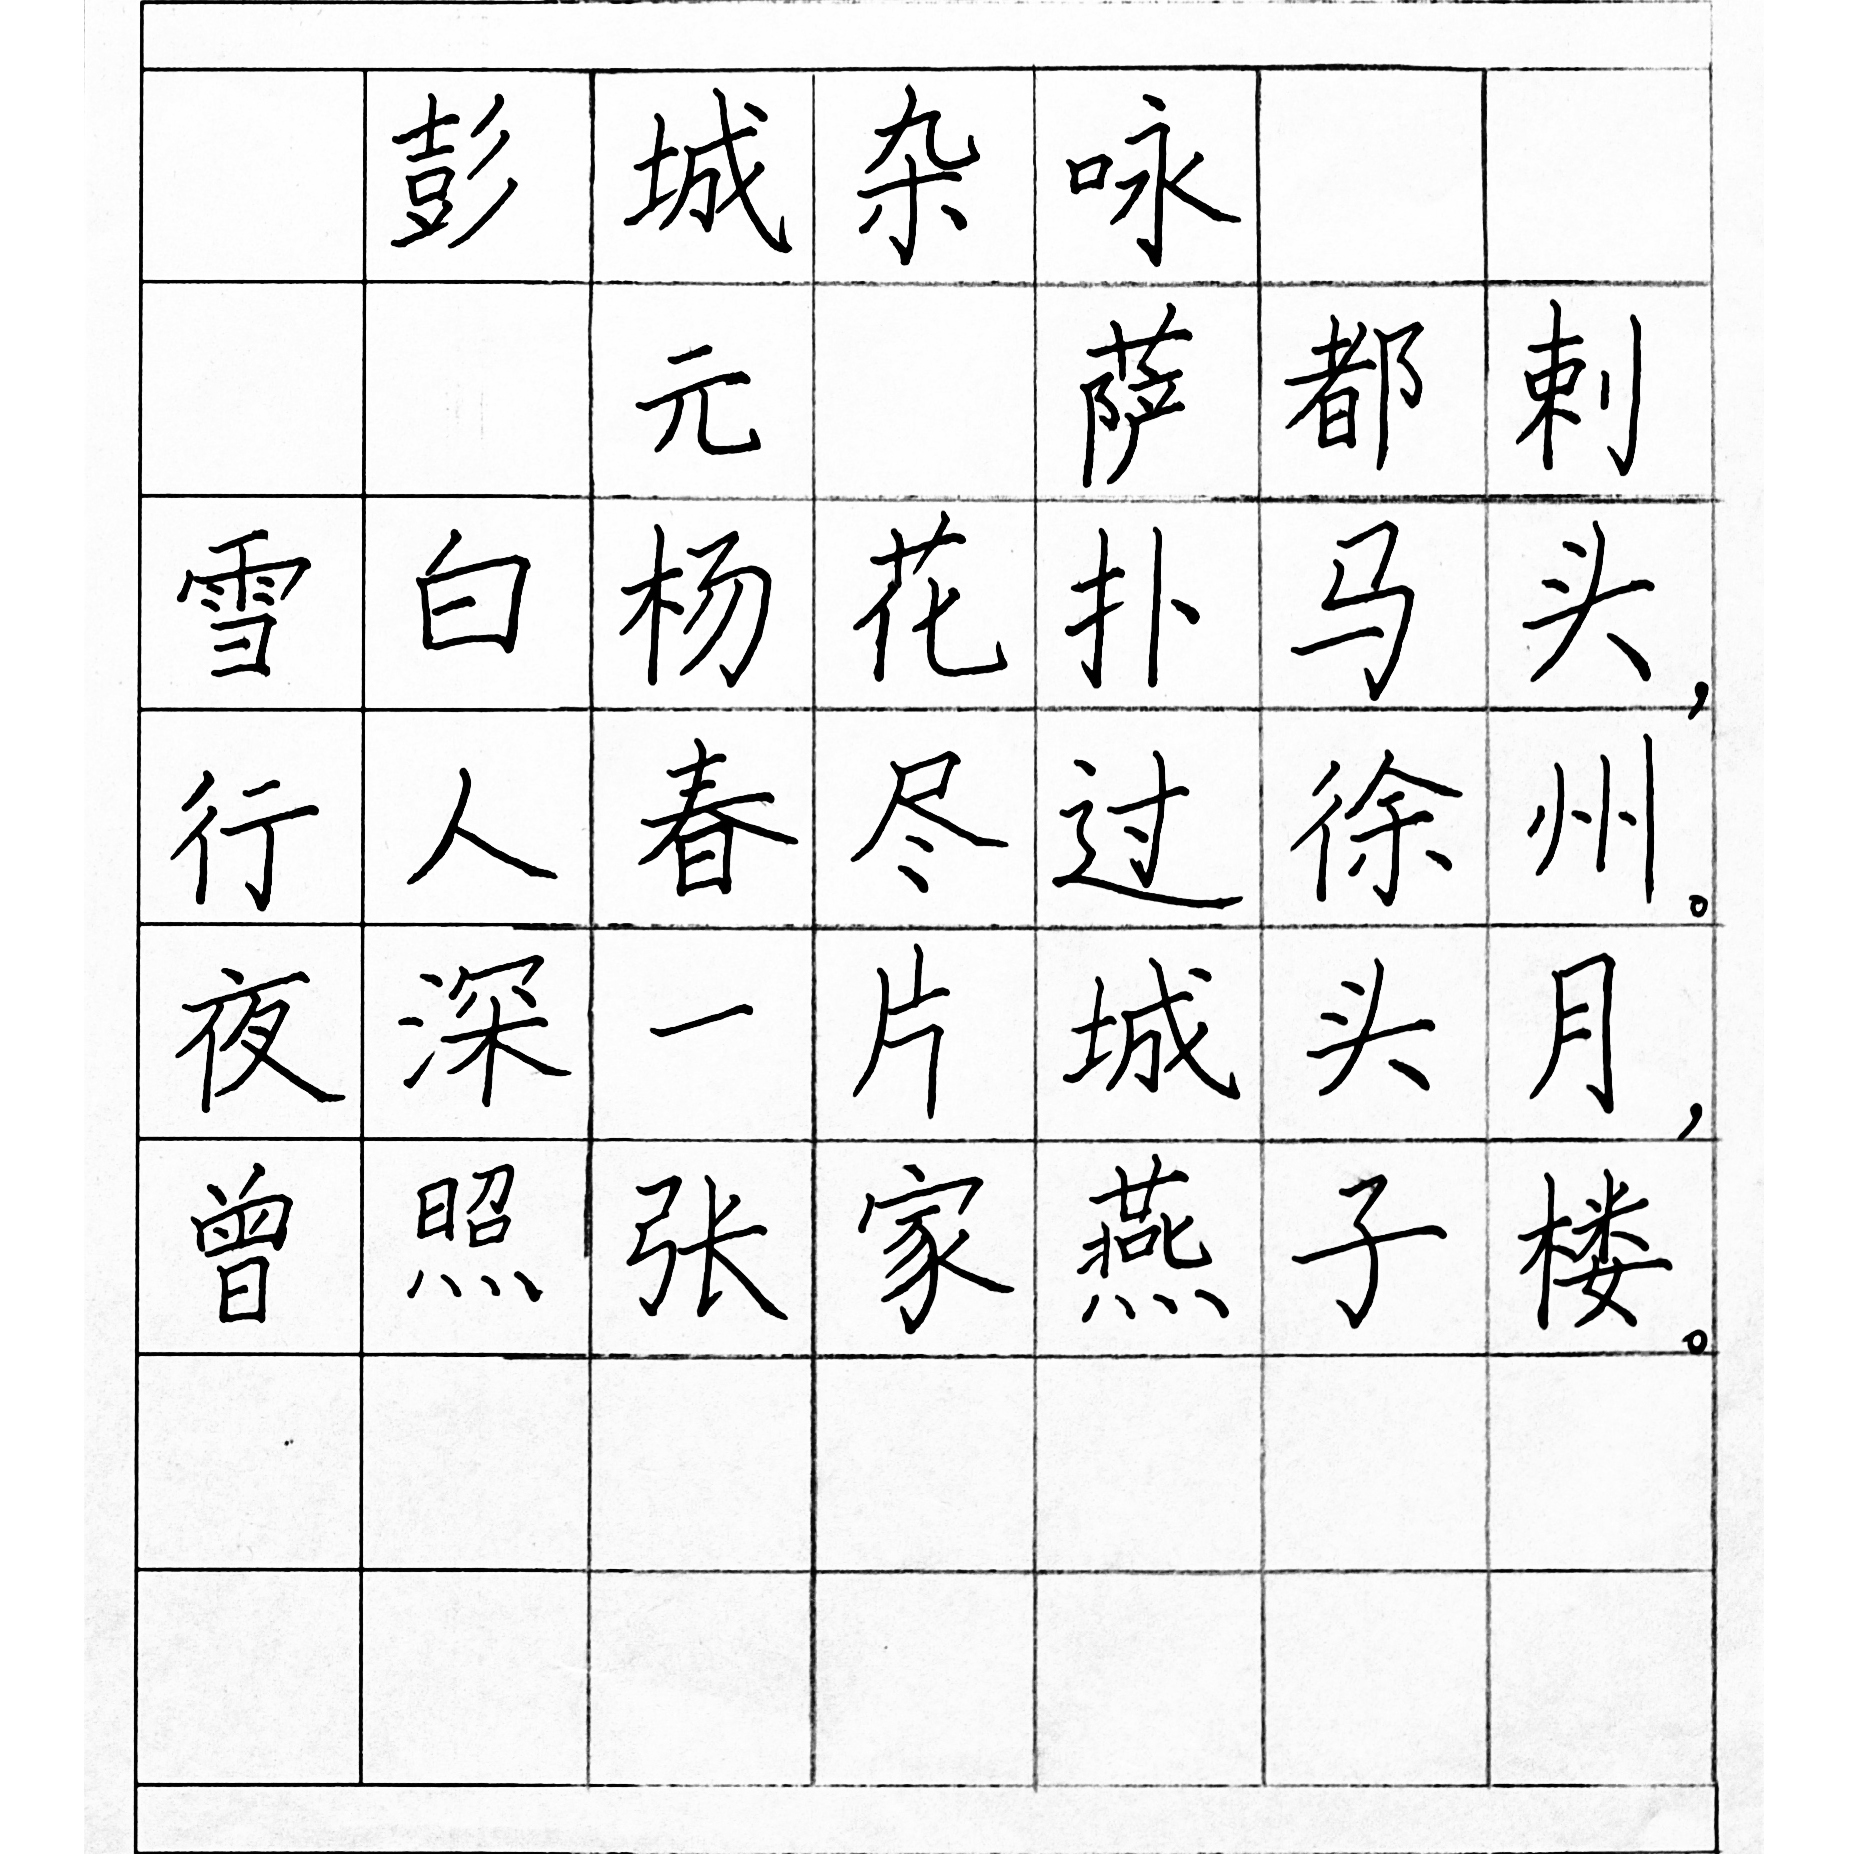 彭城杂咏
元 萨都剌
雪白杨花扑马头，
行人春尽过徐州。
夜深一片城头月，
曾照张家燕子楼。